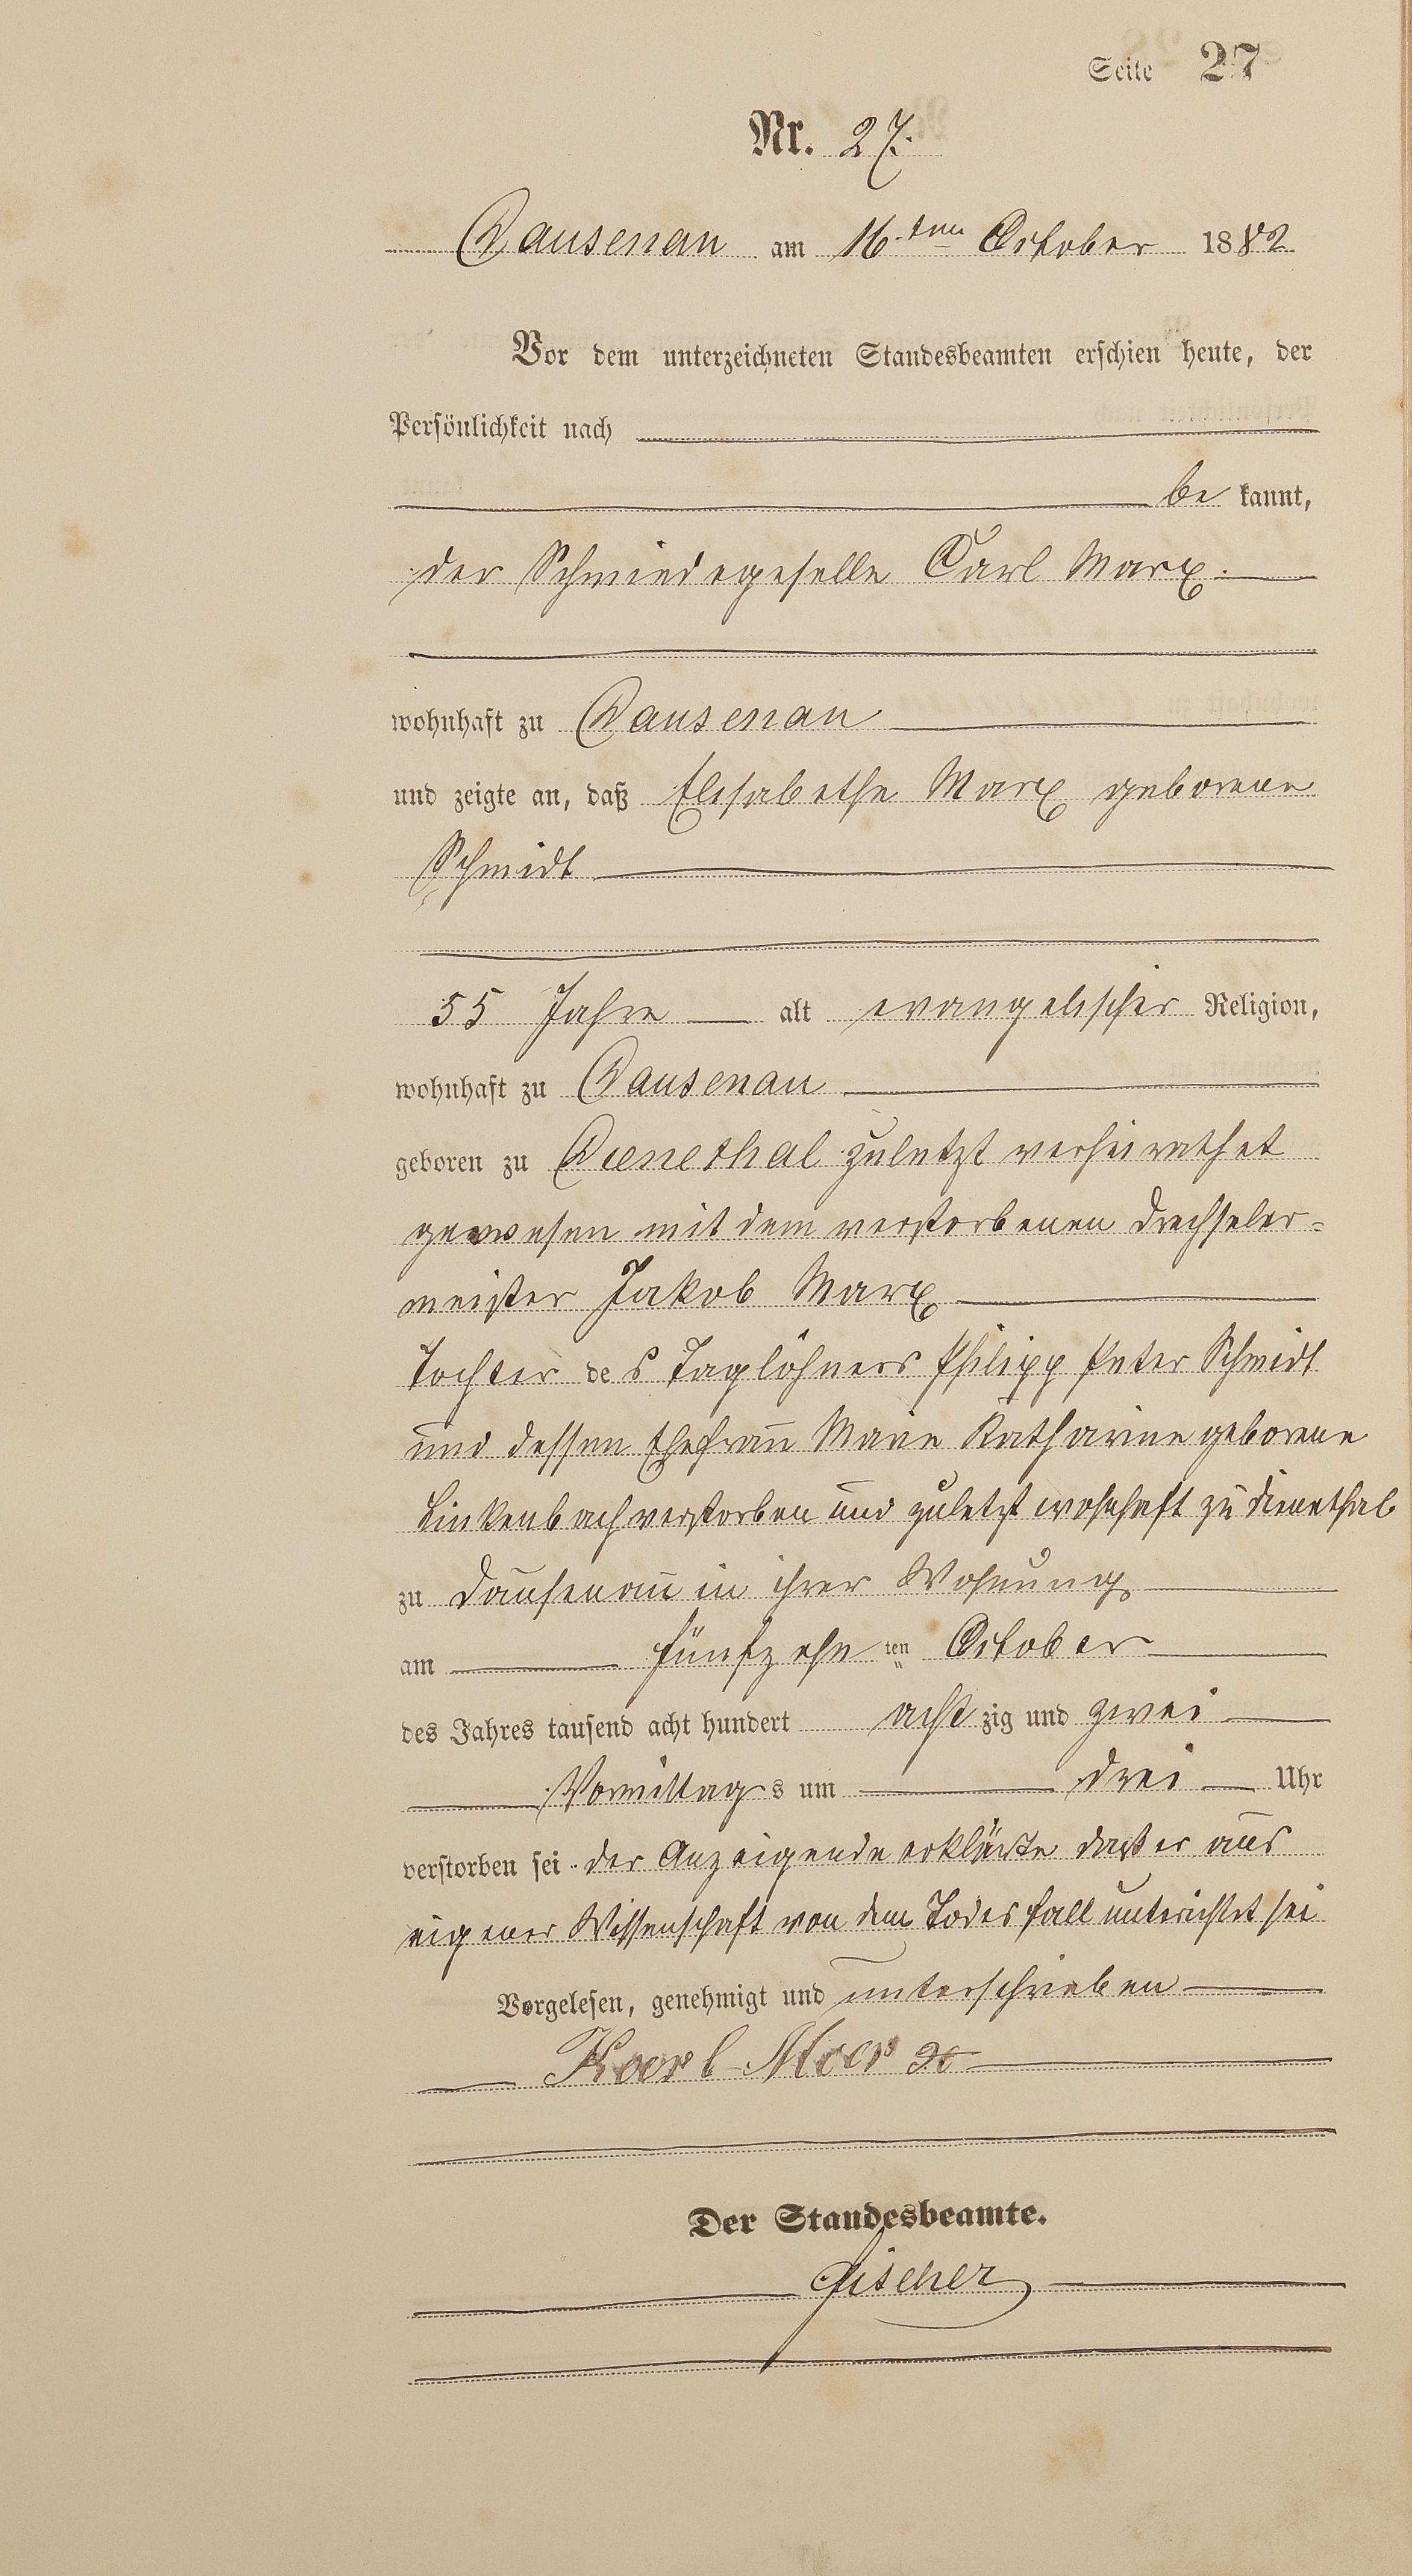 Seite 27
Nr. 27.
Dausenau am 16.ten October 1882
Vor dem unterzeichneten Standesbeamten erschien heute, der
Persönlichkeit nach
be kannt,
der Schmiedegeselle Carl Marx.
wohnhaft zu Dausenau
und zeigte an, daß Elisabethe Marx geborene
Schmidt
55 Jahre alt evangelischer Religion,
wohnhaft zu Dausenau
geboren zu Dienethal zuletzt verheirathet
gewesen mit dem verstorbenen Drechseler-
meister Jakob Marx
Tochter des Taglöhners Philipp Peter Schmidt
und dessen Ehefrau Marie Katharine geborene
Linkenbach verstorben und zuletzt wohnhaft zu Dienethal
zu Dausenau in ihrer Wohnung
am fünfzehn ten October
des Jahres tausend acht hundert acht zig und zwei
Vormittag s um drei Uhr
verstorben sei. der Anzeigende erklärte daß er aus
eigener Wissenschaft von dem Todesfall unterichtet sei
Vorgelesen, genehmigt und unterschrieben
Karl Marx
Der Standesbeamte.
Fischer